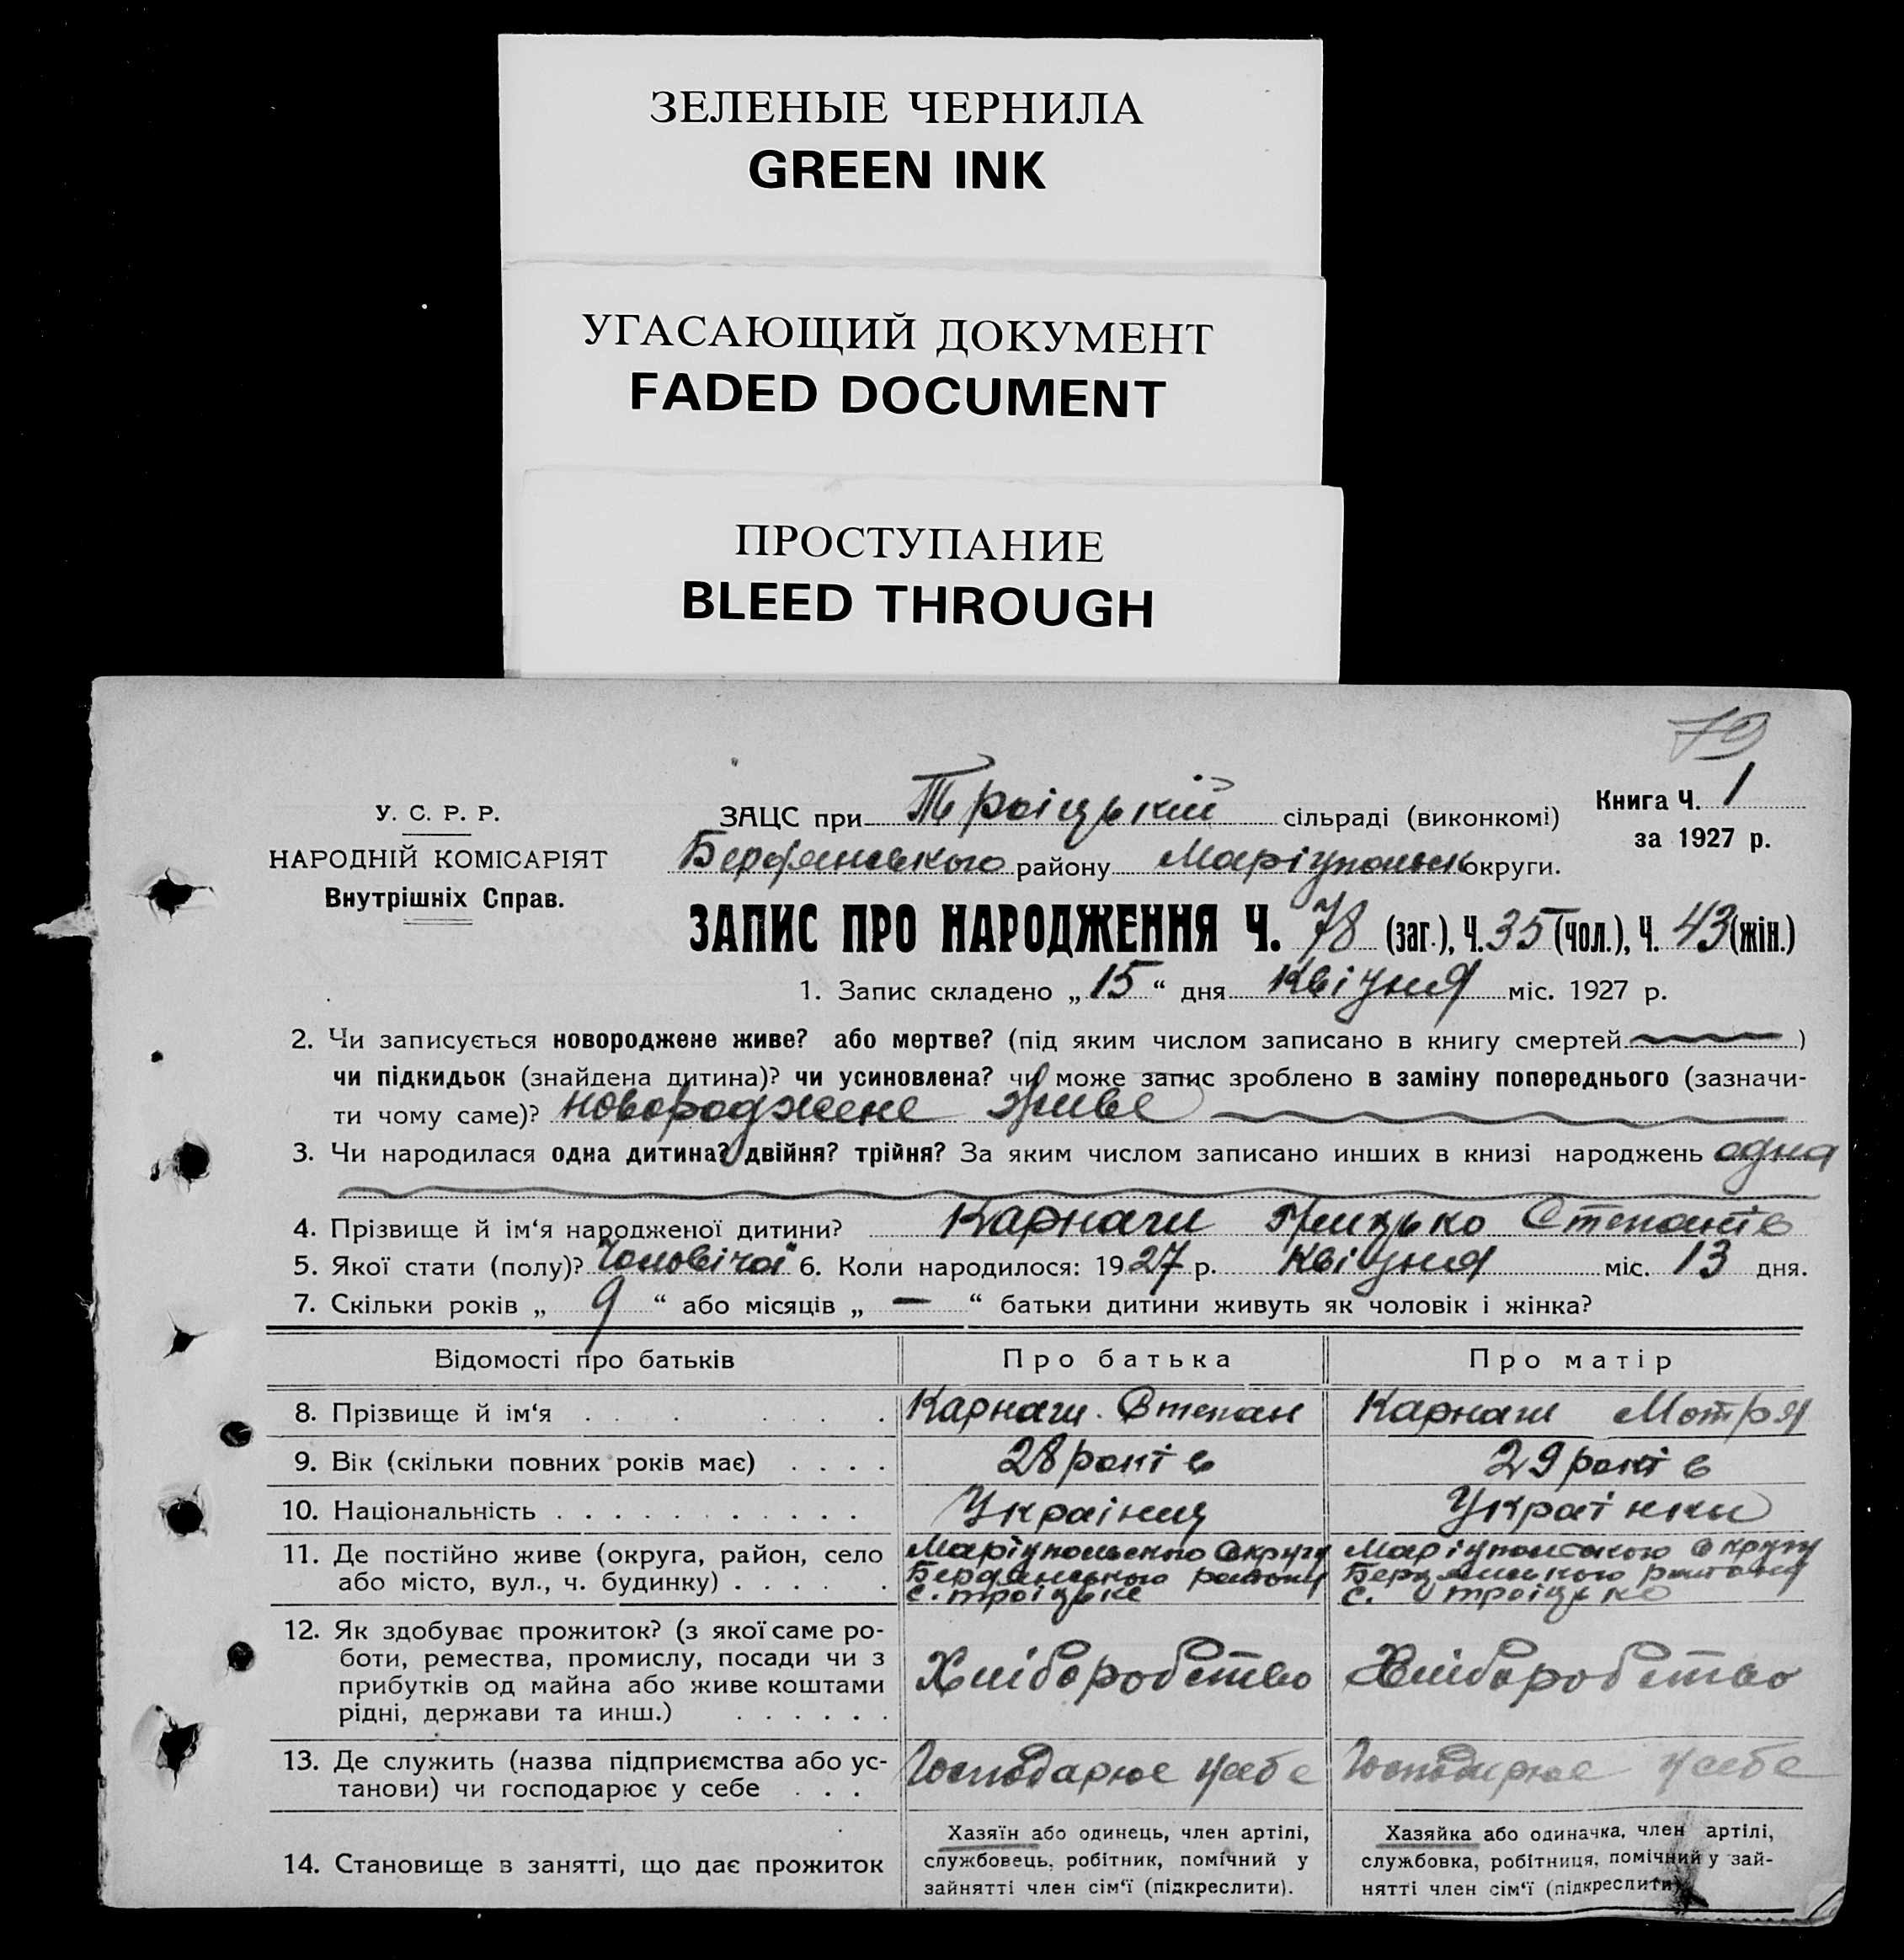 ЗЕЛЕНЫЕ ЧЕРНИЛА
GREEN INK
УГАСАЮЩИЙ ДОКУМЕНТ
FADED DOCUMENT
ПРОСТУПАНИЕ
BLEED THROUGH
79
У. С. Р. Р.
НАРОДНІЙ КОМІСАРІЯТ
Внутрішніх Справ.
ЗАЦС при Троіцькій сільраді (виконкомі)
Книга Ч. 1
за 1927 р.
Бердянського району Маріупольск округи.
ЗАПИС ПРО НАРОДЖЕННЯ Ч. 78 (заг.), Ч. 35 (чол.), Ч. 43 (жін.)
1. Запис складено „ 15 “ дня Квіцня міс. 1927 р.
2. Чи записується новороджене живе? або мертве? (під яким числом записано в книгу смертей )
чи підкидьок (знайдена дитина)? чи усиновлена? чи може запис зроблено в заміну попереднього (зазначи-
ти чому саме)? новороджене живе
3. Чи народилася одна дитина? двійня? трійня? За яким числом записано инших в книзі народжень одна
4. Прізвище й ім‘я народженої дитини? Карнаги Грицько Степанів
5. Якої стати (полу)? Чоловічої 6. Коли народилося: 1927 р. Квіцня міс. 13 дня.
7. Скільки років „ 9 “ або місяців „ — “ батьки дитини живуть як чоловік і жінка?
Відомості про батьків
Про батька
Про матір
8. Прізвище й ім‘я . . . . . . .
Карнаш Степан
Карнаш Мотря
9. Вік (скільки повних років має) . . . .
28 років
29 років
10. Національність . . . . . . . . . . .
Украінць
Украінки
11. Де постійно живе (округа, район, село
або місто, вул., ч. будинку) . . . . .
Маріупольского Округу
Бердянського району
с. троіцьке
Маріупольского Округу
Бердянського району
с. троіцько
12. Як здобуває прожиток? (з якої саме ро-
боти, ремества, промислу, посади чи з
прибутків од майна або живе коштами
рідні, держави та инш.) . . . . . .
Хліборобство
Хліборобство
13. Де служить (назва підприємства або ус-
танови) чи господарює у себе . . .
Господарює у себе
Господарює у себе
14. Становище в занятті, що дає прожиток
Хазяїн або одинець, член артілі,
службовець, робітник, помічний у
зайнятті член сім‘ї (підкреслити).
Хазяйка або одиначка, член артілі,
службовка, робітниця, помічний у зай-
нятті член сім‘ї (підкреслити)